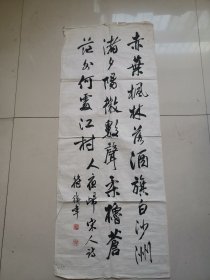 赤葉楓林落酒旗白沙洲
渚夕陽微數聲柔櫓蒼
茫外何處江村人夜歸宋人詩